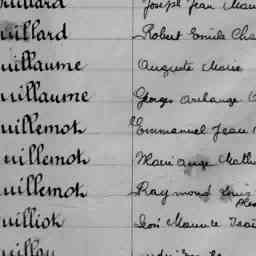 uillard Joseph Jean Mau
uillard Robert Emile Cha
uillaume Auguste Marie
uillaume Georges Archange
uillemot Emmanuel Jean
uillemot Marie Ange Math
uillemot Raymond Louis
uilliot Léon Maurice